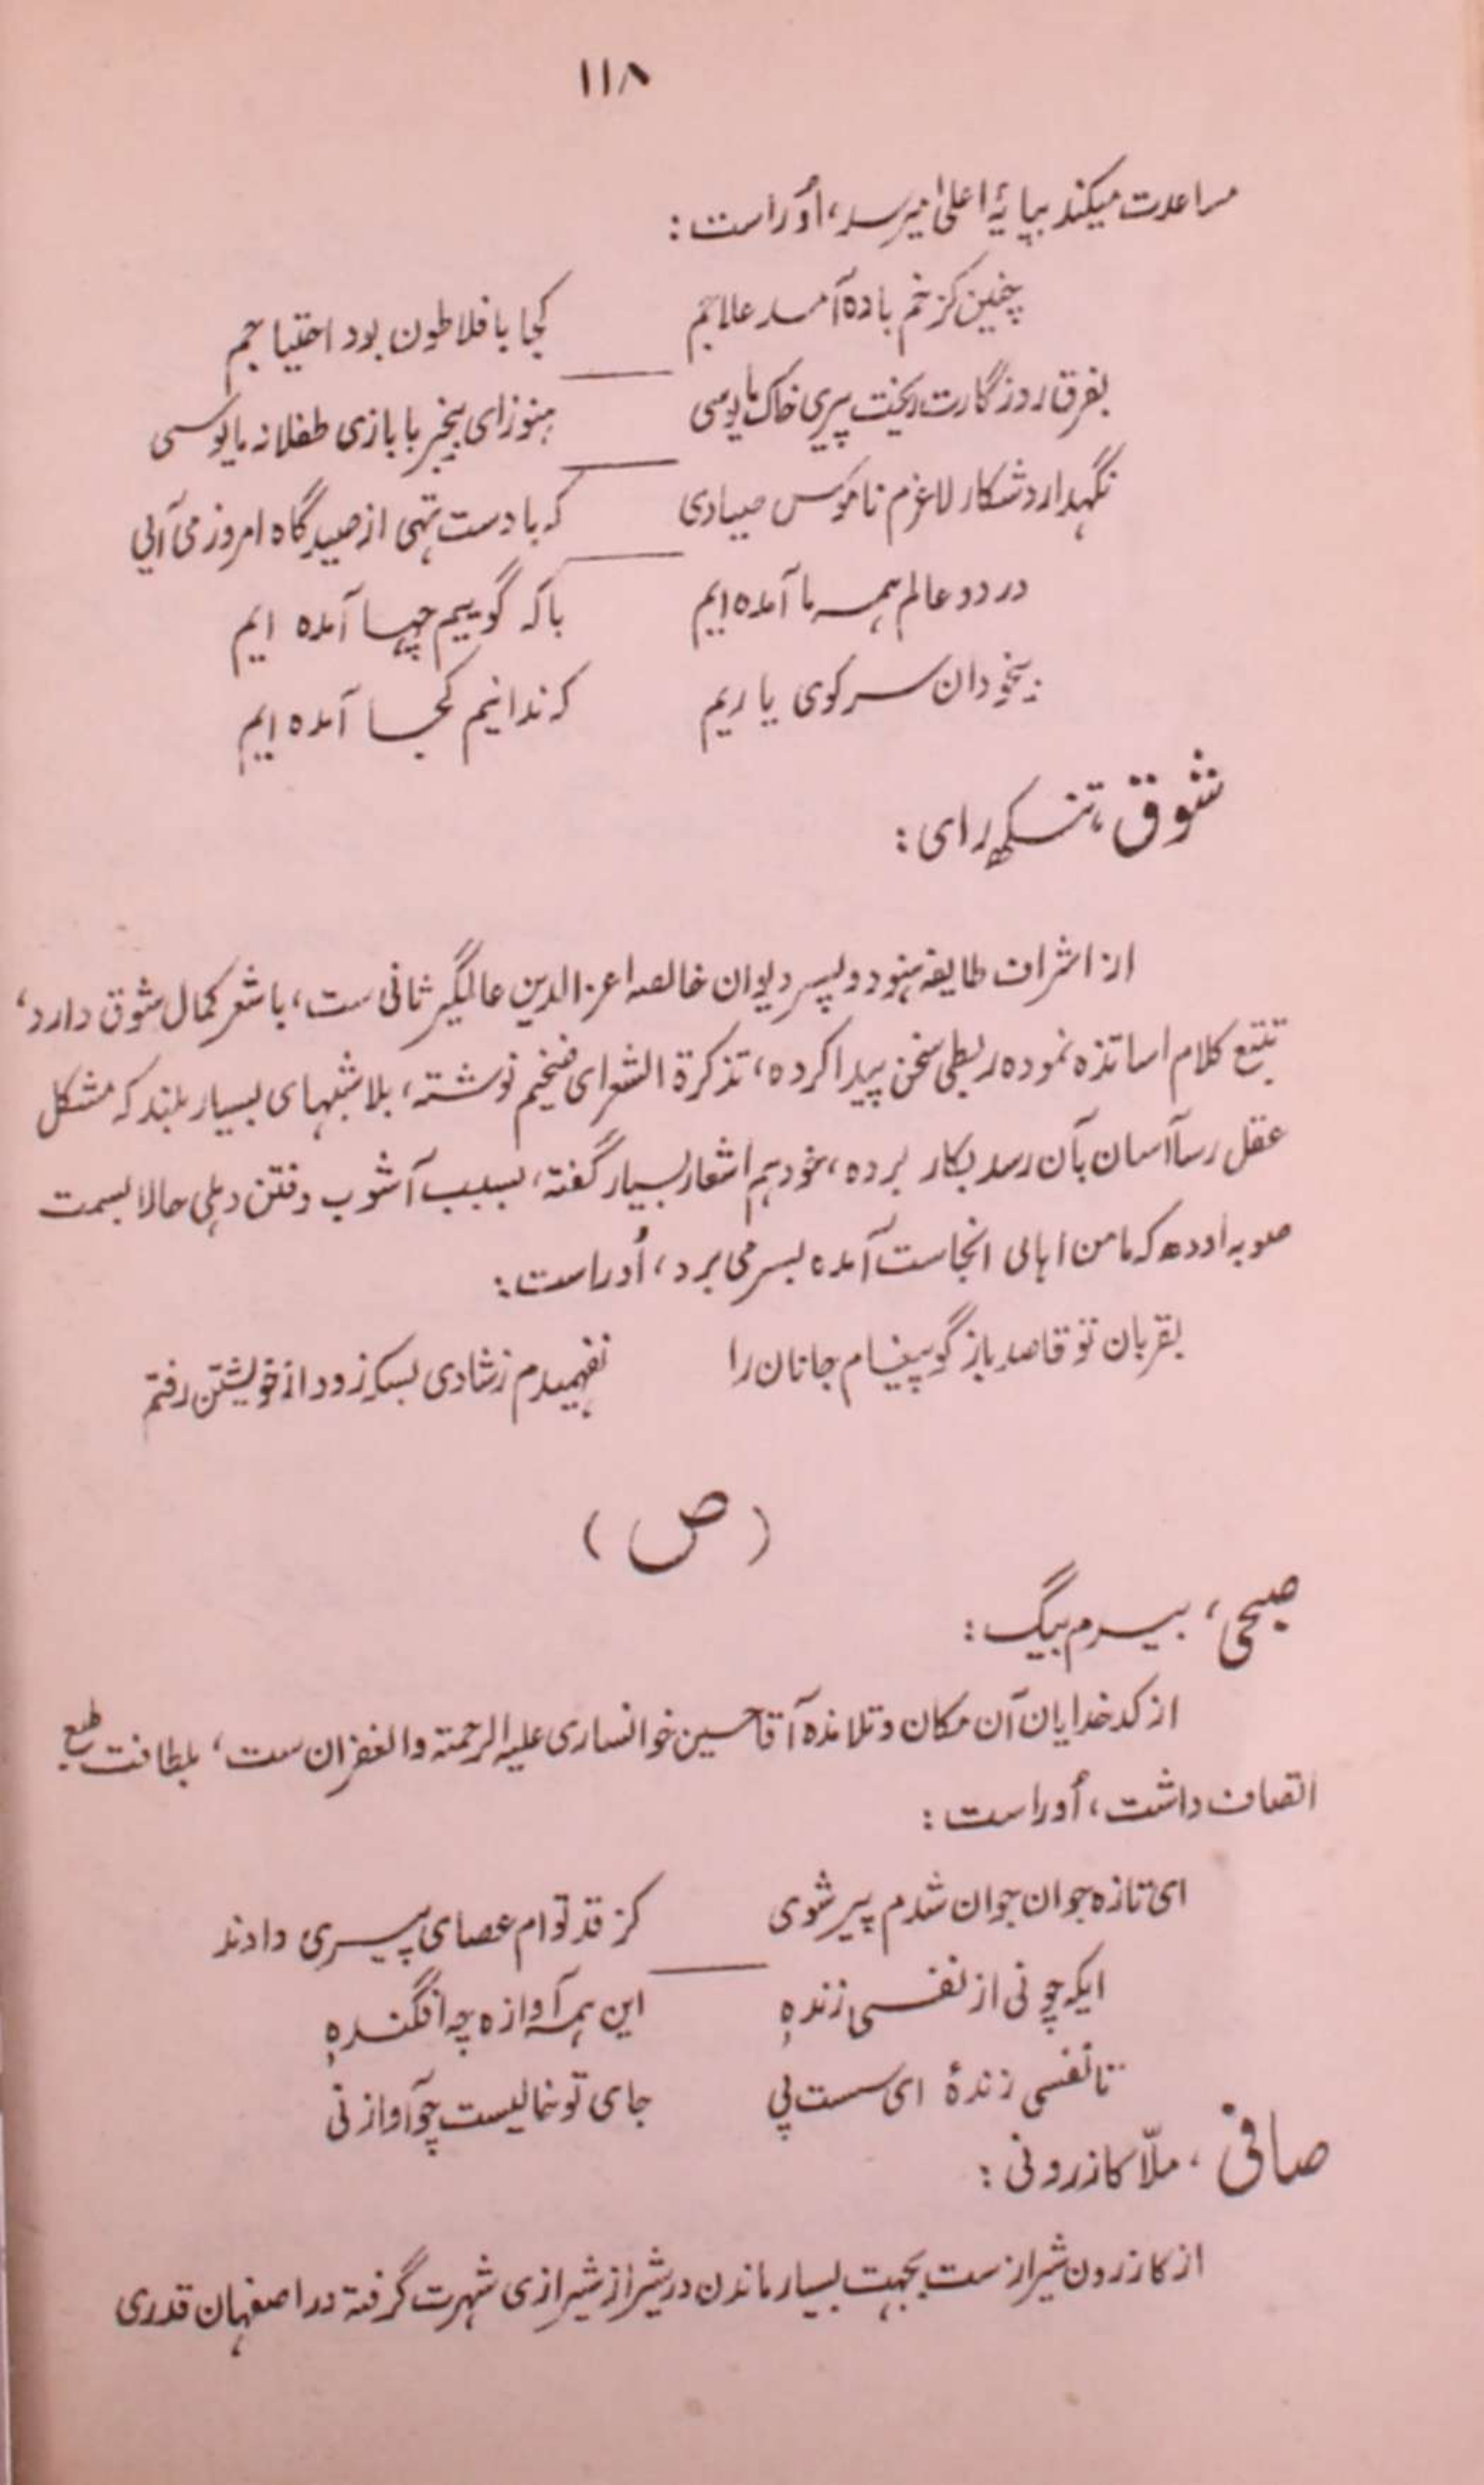 ۱۱۸
مساعدت میکند بپایۂ اعلیٰ میرسد، اُوراست:
چنین کز خم باده آمد علاجم کجا با فلاطون بود احتیاجم
بفرق روزگارت ریخت پیری خاک مایوسی هنوز ای بیخبر با بازی طفلانه مایوسی
نگهدارد شکار لاغرم ناموس صیادی که با دست تهی از صیدگاه امروز می آیی
در دو عالم همه ما آمده ایم با که گوییم چها آمده ایم
بیخودان سر کوی یاریم که ندانیم کجا آمده ایم
شوق، تنسکھ رای:
از اشراف طایفه هنود و پسر دیوان خالصه اعزالدین عالمگیر ثانی ست، با شعر کمال شوق دارد،
تتبع کلام اساتذه نموده ربطی سخن پیدا کرده، تذکرة الشعرای ضخیم نوشته، بلا شبهای بسیار بلند که مشکل
عقل رسا آسان بآن رسد بکار برده، خود هم اشعار بسیار گفته، بسبب آشوب و فتن دهلی حالا بسمت
صوبه اوده که مامن اهالی انجاست آمده بسر می برد، اُوراست:
بقربان تو قاصد باز گو پیغام جانان را نفهمیدم ز شادی بسکه زود از خویشتن رفتم
(ص)
صبحی، بیرم بیگ:
از کدخدایان آن مکان و تلامذه آقا حسین خوانساری علیه الرحمته والغفران ست، بلطافت طبع
اتصاف داشت، اُوراست:
ای تازه جوان جوان شدم پیر شوی کز قد توام عصای پیری دادند
ایکه چو نی از نفسی زندهٖ این همه آوازه چه افگندهٖ
تا نفسی زندهٔ ای سست پی جای تو خالیست چو آواز نی
صافی، ملّا کازرونی:
از کازرون شیراز ست بجهت بسیار ماندن در شیراز شیرازی شهرت گرفته در اصفهان قدری